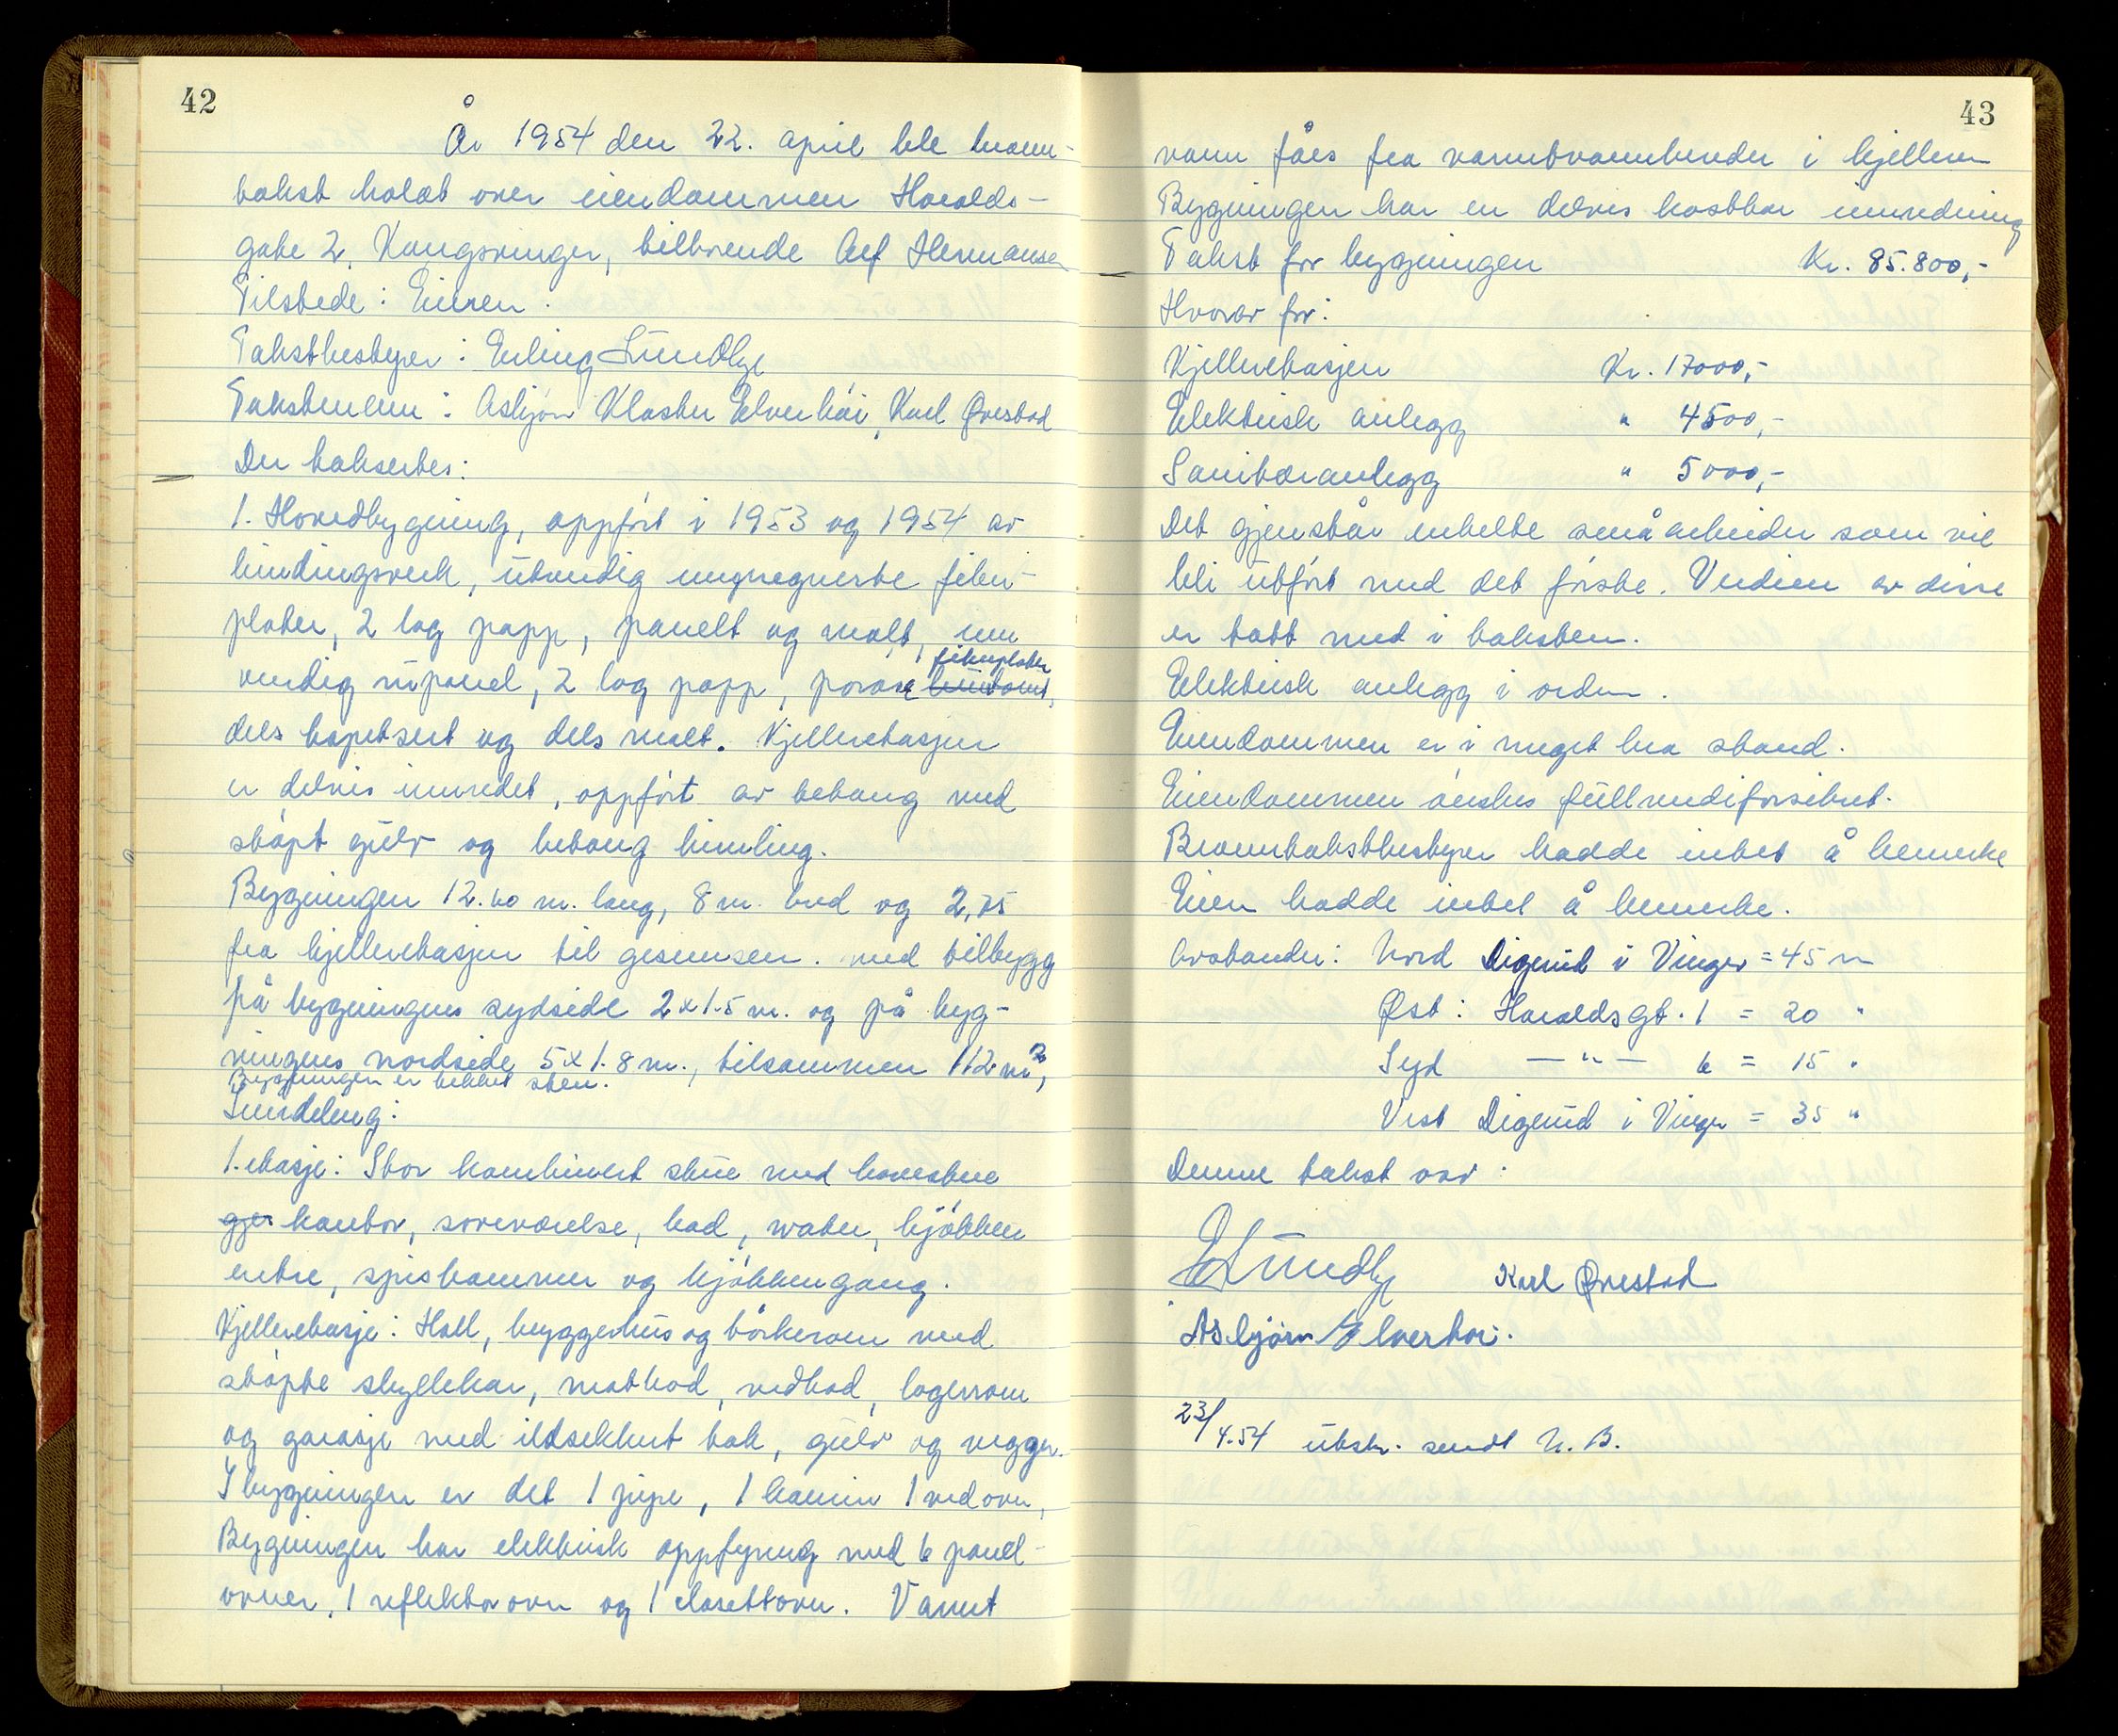 42
År 1954 den 22. april ble brann-
takst holdt over eiendommen Haralds-
gate 2, Kongsvinger, tilhørende Alf Hermansen
Tilstede: Eieren.
Takstbestyrer: Erling Lundby
Takstmenn: Asbjørn Kloster Elverhøi, Karl Øvestad
Der taksertes:
1. Hovedbygning, oppført i 1953 og 1954 av
bindingsverk, utvendig impregnerte fiber-
plater, 2 lag papp, panelt og malt, inn
vendig rupanel, 2 lag papp, porøse fiberplater
dels tapetsert og dels malt. Kjelleretasjen
er delvis innredet, oppført av betong med
støpt gulv og betong himling.
Bygningen 12.60 m. lang, 8 m. bred og 2,75
fra kjelleretasjen til gesimsen. med tilbygg
på bygningens sydside 2x1.5 m. og på byg-
ningens nordside 5x1.8 m., tilsammen 112 m²,
Bygningen er tekket sten.
Inndeling:
1. etasje: Stor kombinert stue med havestue
gjes kontor, soveværelse, bad, water, kjøkken
entre, spiskammer og kjøkkengang.
Kjelleretasje: Hall, bryggerhus og tørkerom med
støpte skyllekar, matbod, vedbod, lagerrom
og garasje med ildsikkert tak, gulv og vegger.
I bygningen er det 1 pipe, 1 kamin 1 vedovn,
Bygningen har elektrisk oppfyring med 6 panel-
ovner, 1 reflektorovn og 1 closettovn. Varmt
43
vann fåes fra varmtvannbereder i kjelleren
Bygningen har en delvis kostbar innredning
Takst for bygningen Kr. 85.800,-
Hvorav for:
Kjelleretasjen Kr. 17000,-
Elektrisk anlegg " 4500,-
Sanitæranlegg " 5000,-
Det gjenstår enkelte små arbeider som vil
bli utført med det første. Verdien av disse
er tatt med i taksten.
Elektrisk anlegg i orden.
Eiendommen er i meget bra stand.
Eiendommen ønskes fullverdiforsikret.
Branntakstbestyrer hadde intet å bemerke
Eieren hadde intet å bemerke.
Avstander: Nord Digerud i Vinger = 45 m
Øst: Haraldsgt. 1 = 20 "
Syd — " — 6 = 15 "
Vest Digerud i Vinger = 35 "
Denne takst var:
E Lundby Karl Øvestad
Asbjørn Elverhøi.
23/4.54 utskr. sendt N. B.